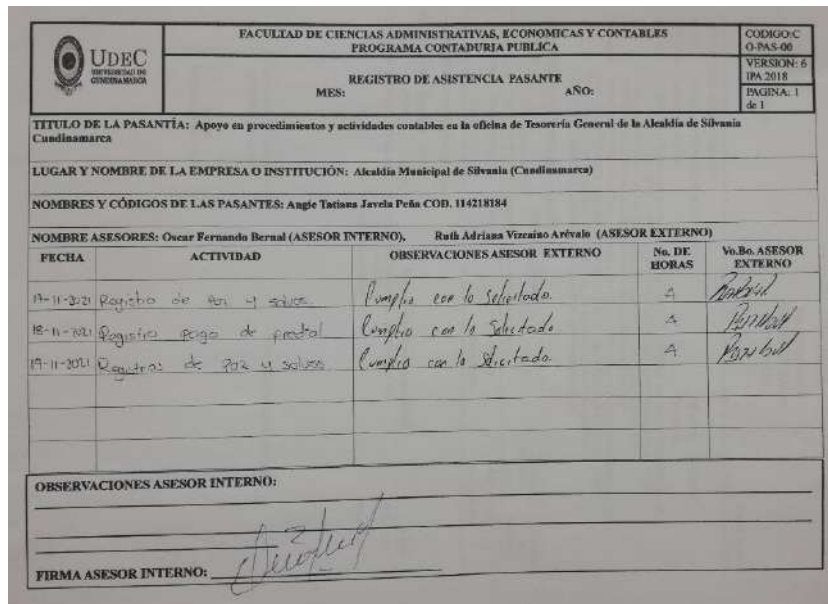 UDEC
UNIVERSIDAD DE
CUNDINAMARCA
FACULTAD DE CIENCIAS ADMINISTRATIVAS, ECONOMICAS Y CONTABLES
PROGRAMA CONTADURIA PUBLICA
REGISTRO DE ASISTENCIA PASANTE
MES: AÑO:
CODIGO:C
O-PAS-00
VERSION: 6
IPA 2018
PAGINA: 1
de 1
TITULO DE LA PASANTÍA: Apoyo en procedimientos y actividades contables en la oficina de Tesorería General de la Alcaldía de Silvania
Cundinamarca
LUGAR Y NOMBRE DE LA EMPRESA O INSTITUCIÓN: Alcaldía Municipal de Silvania (Cundinamarca)
NOMBRES Y CÓDIGOS DE LAS PASANTES: Angie Tatiana Javela Peña COD. 114218184
NOMBRE ASESORES: Oscar Fernando Bernal (ASESOR INTERNO), Ruth Adriana Vizcaino Arévalo (ASESOR EXTERNO)
FECHA ACTIVIDAD OBSERVACIONES ASESOR EXTERNO No. DE HORAS Vo.Bo. ASESOR EXTERNO
17-11-2021 Registro de Paz y salvos Cumplio con lo Solicitado. 4
18-11-2021 Registro pago de predial Cumplio con lo Solicitado 4
19-11-2021 Registros de Paz y salvos Cumplio con lo Solicitado. 4
OBSERVACIONES ASESOR INTERNO:
FIRMA ASESOR INTERNO: